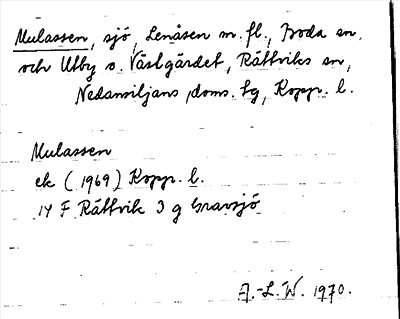 Mulassen, sjö, Lenåsen m. fl., Boda sn,
och Utby o. Västgärdet, Rättviks sn,
Nedansiljans doms. tg, Kopp. l.
Mulassen
ek (1969) Kopp. l.
14 F Rättvik 3 g Gravsjö
A.-L. W. 1970.